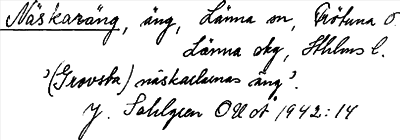 Näskaräng, äng, Länna sn, Frötuna o.
Länna skg, Sthlms l.
'(Grovsta) näskarlarnas äng'.
J. Sahlgren OUÅ 1942:14